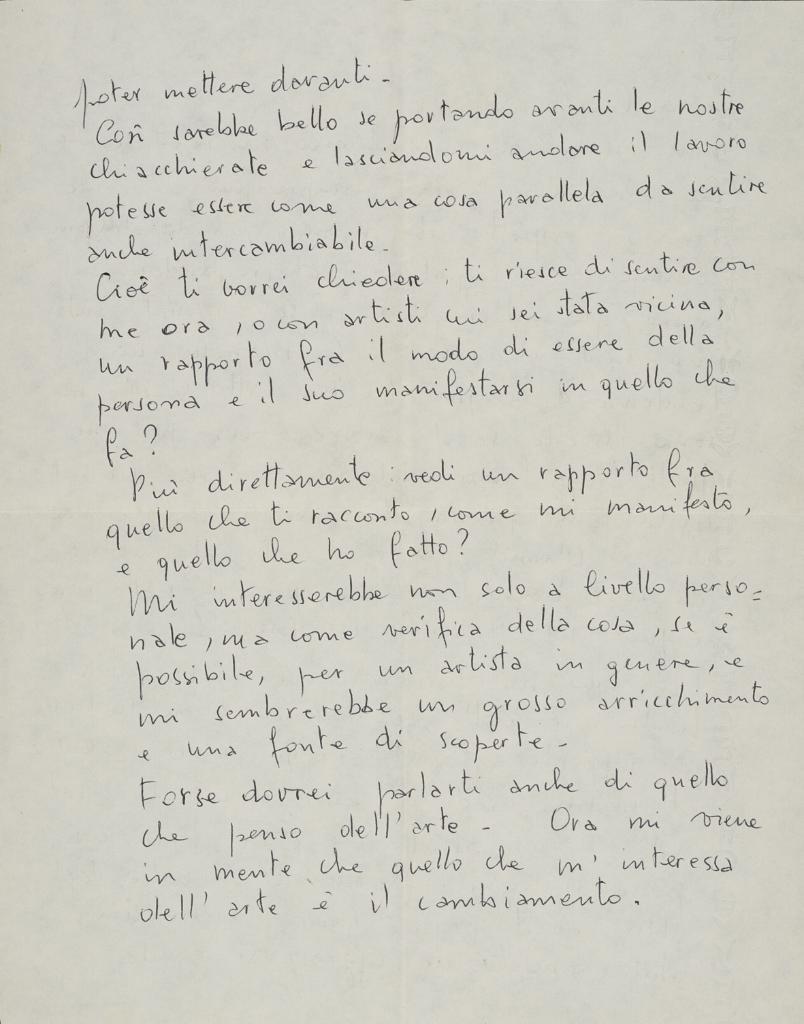 poter mettere davanti -
Così sarebbe bello se portando avanti le nostre
chiacchierate e lasciandomi andare il lavoro
potesse essere come una cosa parallela da sentire
anche intercambiabile -
Cioè ti vorrei chiedere : ti riesce di sentire con
me ora , o con artisti cui sei stata vicina,
un rapporto fra il modo di essere della
persona e il suo manifestarsi in quello che
fa ?
Più direttamente : vedi un rapporto fra
quello che ti racconto , come mi manifesto ,
e quello che ho fatto ?
Mi interesserebbe non solo a livello perso=
nale , ma come verifica della cosa , se è
possibile, per un artista in genere , e
mi sembrerebbe un grosso arricchimento
e una fonte di scoperte -
Forse dovrei parlarti anche di quello
che penso dell'arte - Ora mi viene
in mente che quello che m'interessa
dell'arte è il cambiamento .